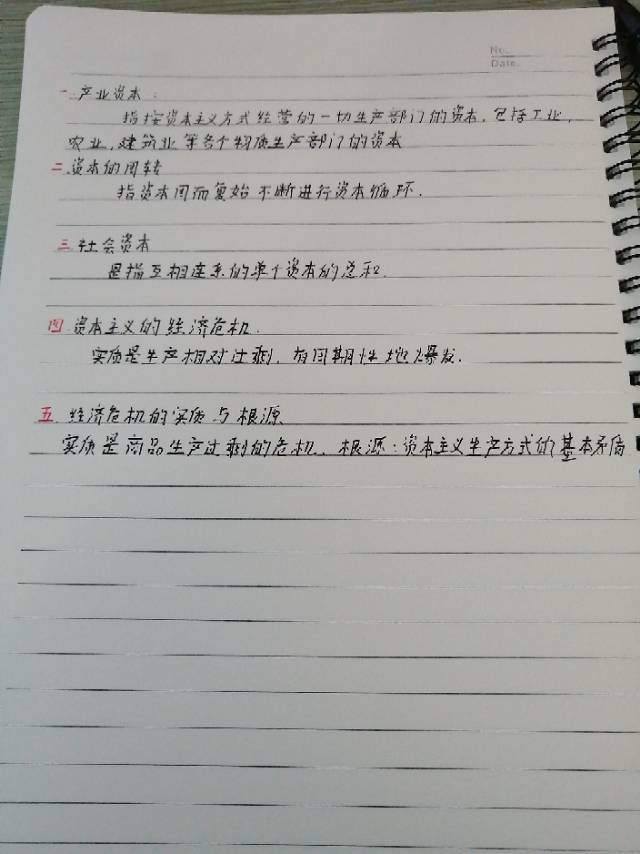 No.
Date.
一.产业资本：
指按资本主义方式经营的一切生产部门的资本，包括工业，
农业，建筑业等各个物质生产部门的资本
二.资本的周转
指资本周而复始不断进行资本循环．
三.社会资本
是指互相连系的单个资本的总和．
四.资本主义的经济危机．
实质是生产相对过剩，有周期性地爆发．
五.经济危机的实质与根源．
实质是商品生产过剩的危机．根源：资本主义生产方式的基本矛盾